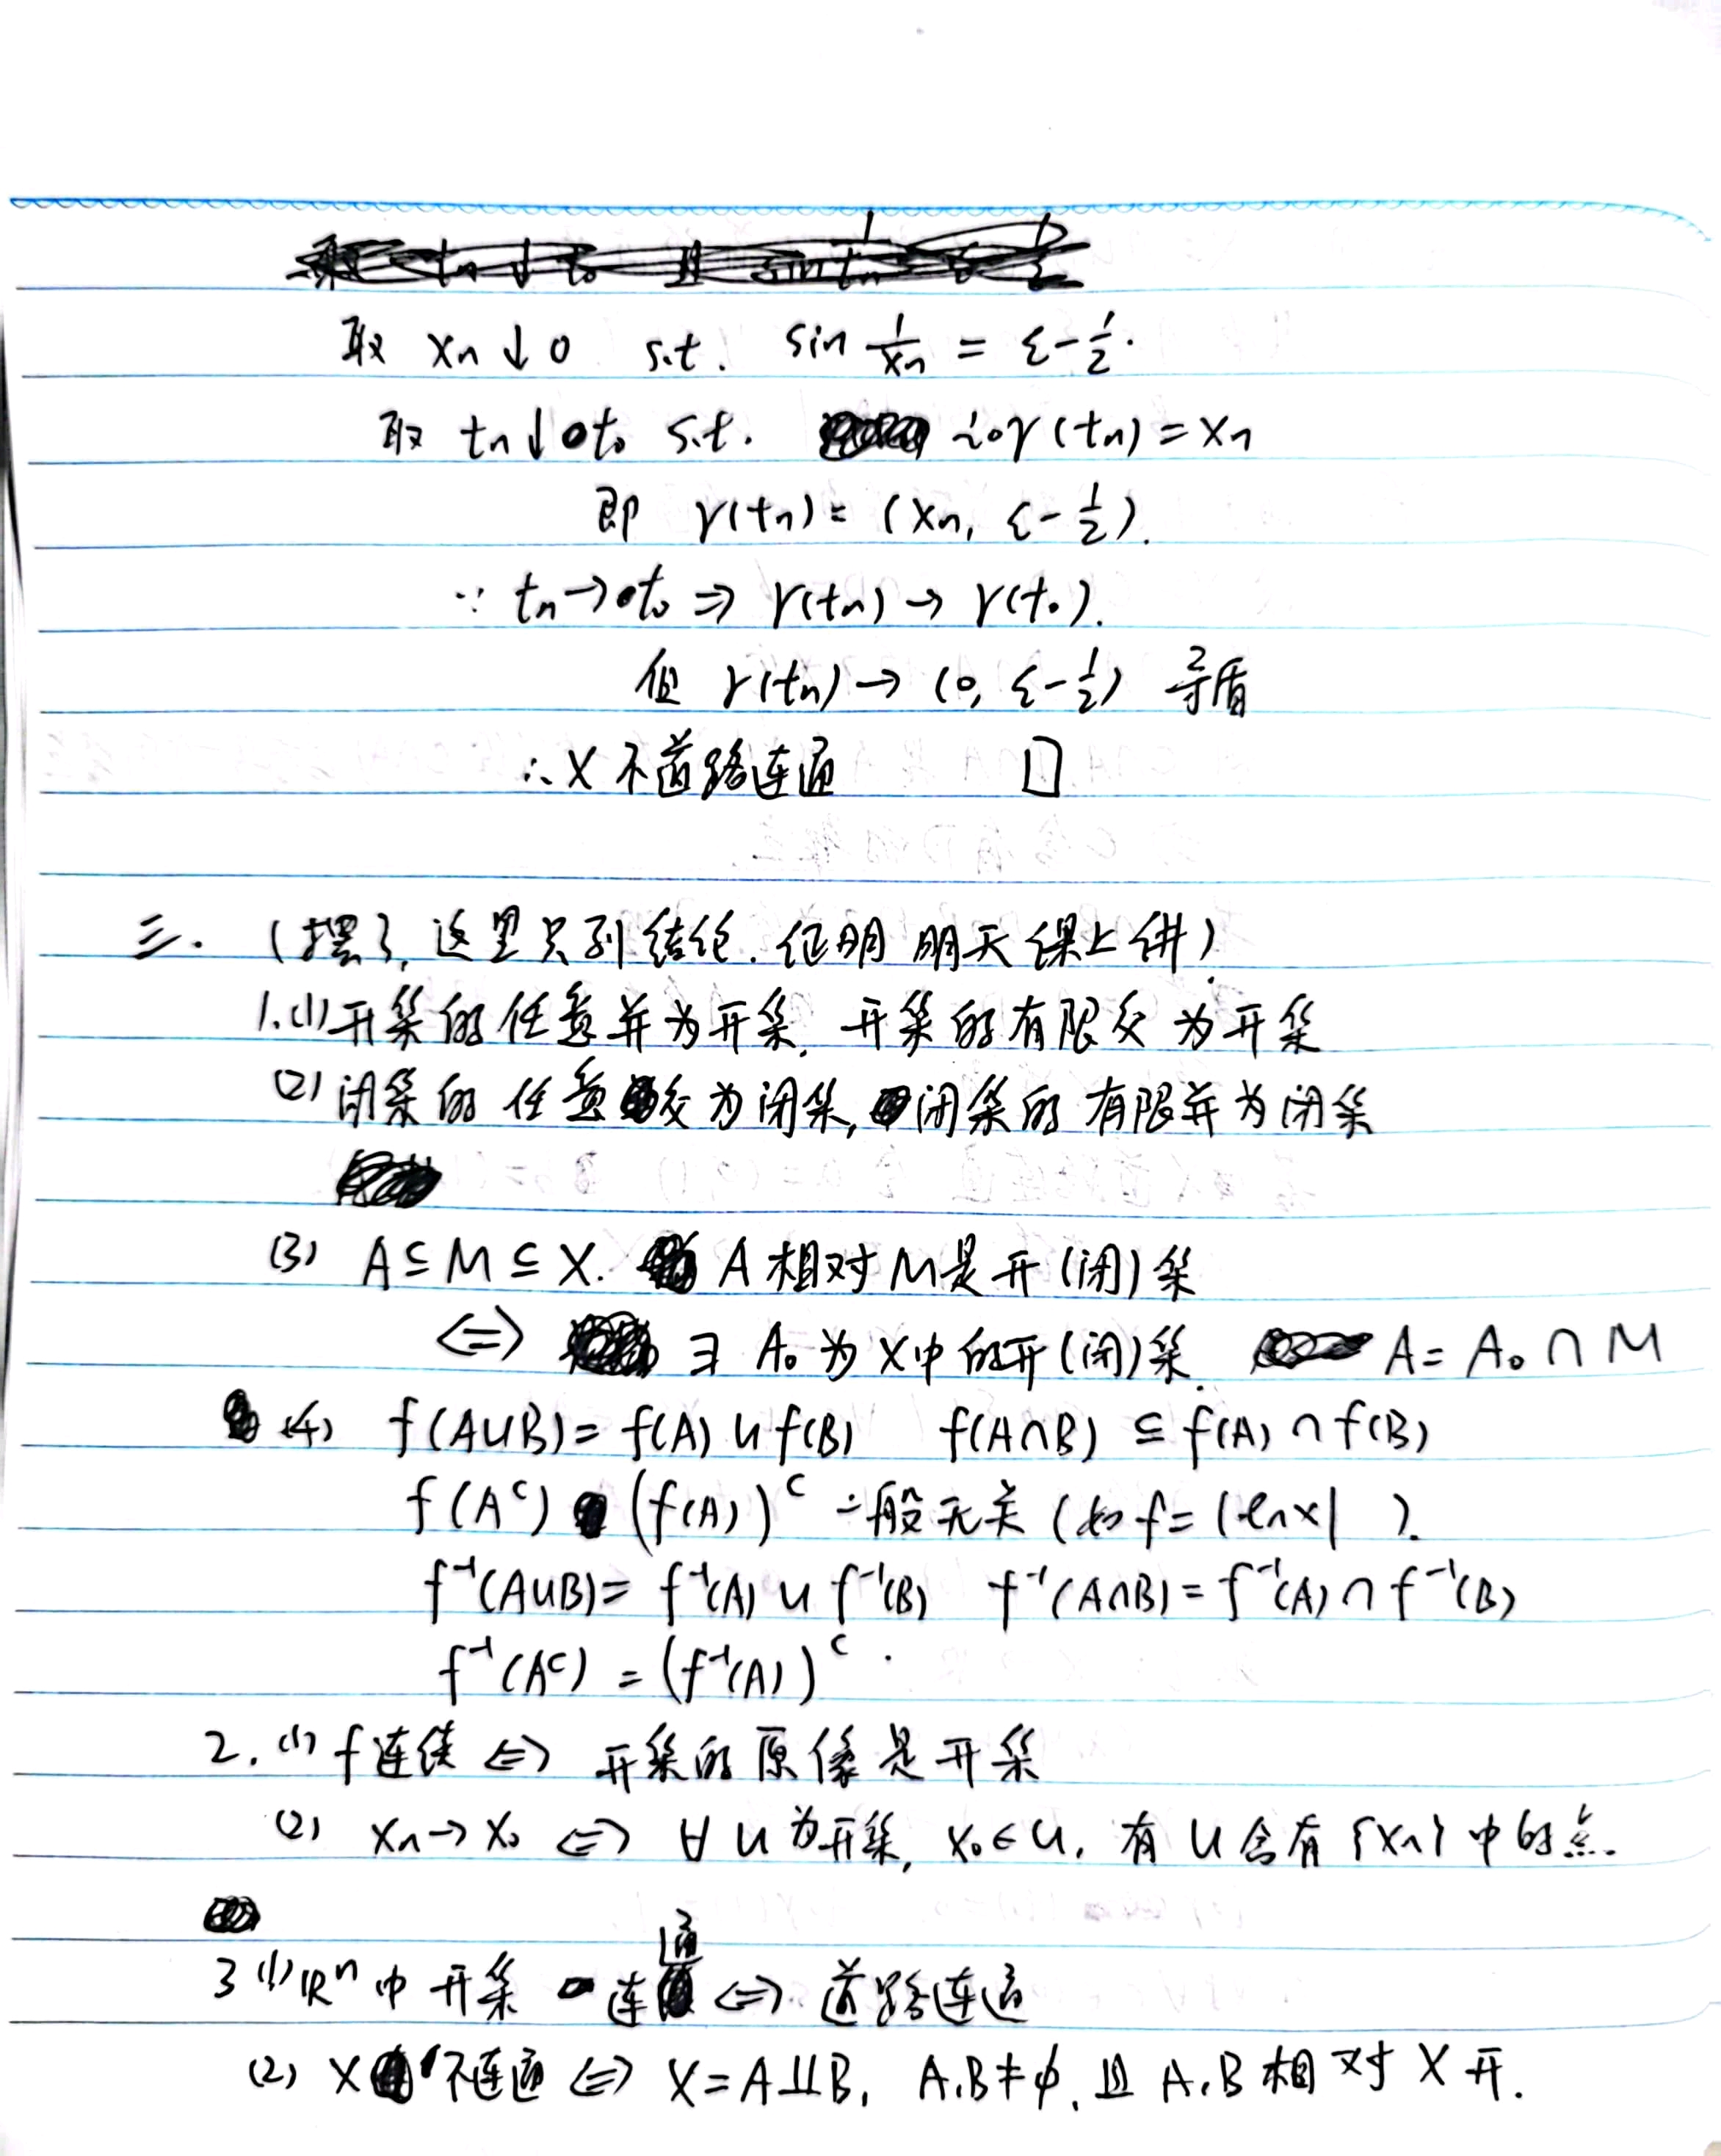 取 xn↓0 s.t. sin 1/xn = ξ-1/2.
取 tn↓t0 s.t. i∘γ(tn)=xn
即 γ(tn)=(xn, ξ-1/2).
∵ tn→t0 ⇒ γ(tn)→γ(t0).
但 γ(tn)→(0, ξ-1/2) 矛盾
∴X不道路连通 □
三. (摆了,这里只列结论.证明明天课上讲)
1.(1)开集的任意并为开集. 开集的有限交为开集
(2)闭集的任意交为闭集,闭集的有限并为闭集
(3) A⊆M⊆X. A相对M是开(闭)集
⇔ ∃ A0为X中的开(闭)集. A=A0∩M
(4) f(A∪B)=f(A)∪f(B) f(A∩B)⊆f(A)∩f(B)
f(Aᶜ) (f(A))ᶜ 一般无关(如f=|lnx| ).
f⁻¹(A∪B)=f⁻¹(A)∪f⁻¹(B) f⁻¹(A∩B)=f⁻¹(A)∩f⁻¹(B)
f⁻¹(Aᶜ)=(f⁻¹(A))ᶜ.
2.(1)f连续⇔开集的原像是开集
(2) xn→x0 ⇔ ∀U为开集, x0∈U, 有U含有{xn}中的点.
3(1)ℝⁿ中开集连通⇔道路连通
(2) X不连通⇔X=A⨿B, A,B≠∅, 且A,B相对X开.